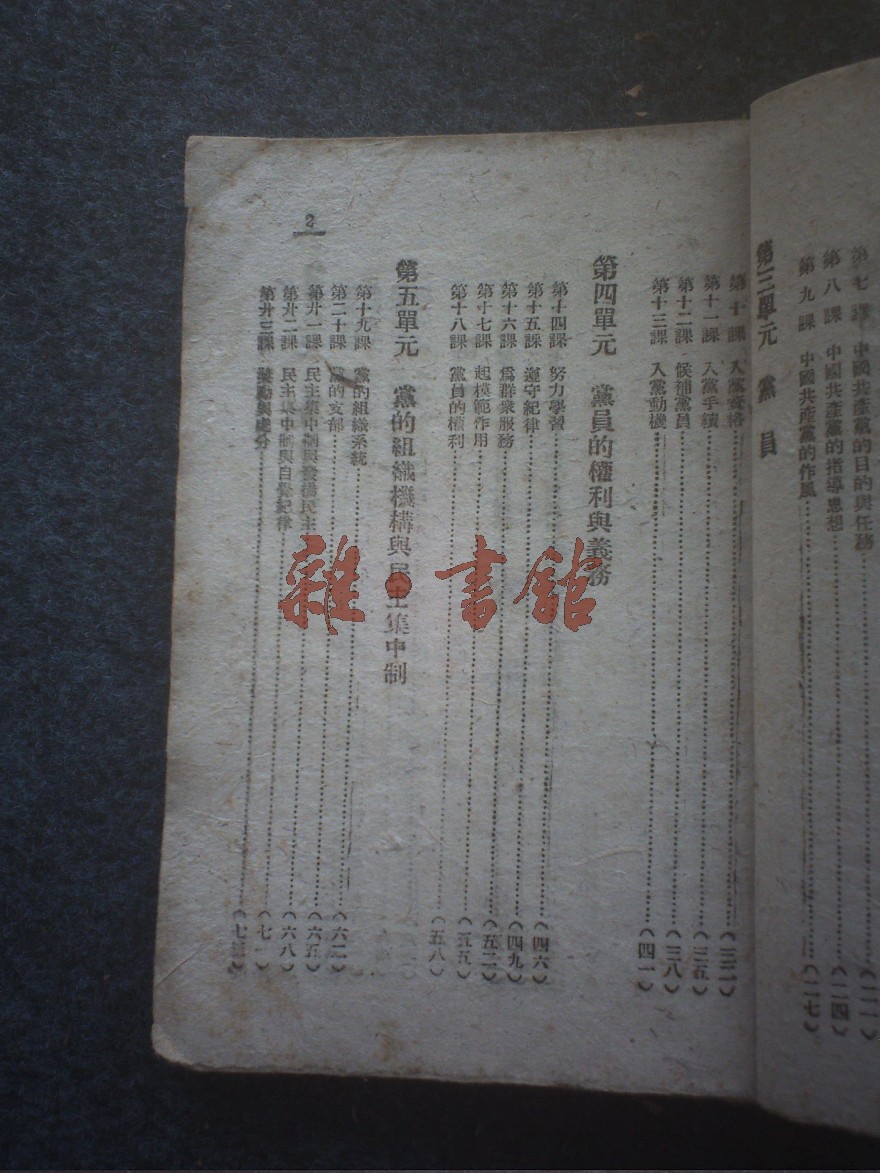 第七課 中國共產黨的目的與任務……(二一)
第八課 中國共產黨的指導思想……(二四)
第九課 中國共產黨的作風……(二七)
第三單元 黨員
第十課 入黨資格……(三二)
第十一課 入黨手續……(三五)
第十二課 候補黨員……(三八)
第十三課 入黨動機……(四一)
第四單元 黨員的權利與義務
第十四課 努力學習……(四六)
第十五課 遵守紀律……(四九)
第十六課 為群衆服務……(五二)
第十七課 起模範作用……(五五)
第十八課 黨員的權利……(五八)
第五單元 黨的組織機構與民主集中制
第十九課 黨的組織系統……(六二)
第二十課 黨的支部……(六五)
第廿一課 民主集中制與發揚民主……(六八)
第廿二課 民主集中制與自覺紀律……(七一)
第廿三課 獎勵與處分……
2
雜·書館